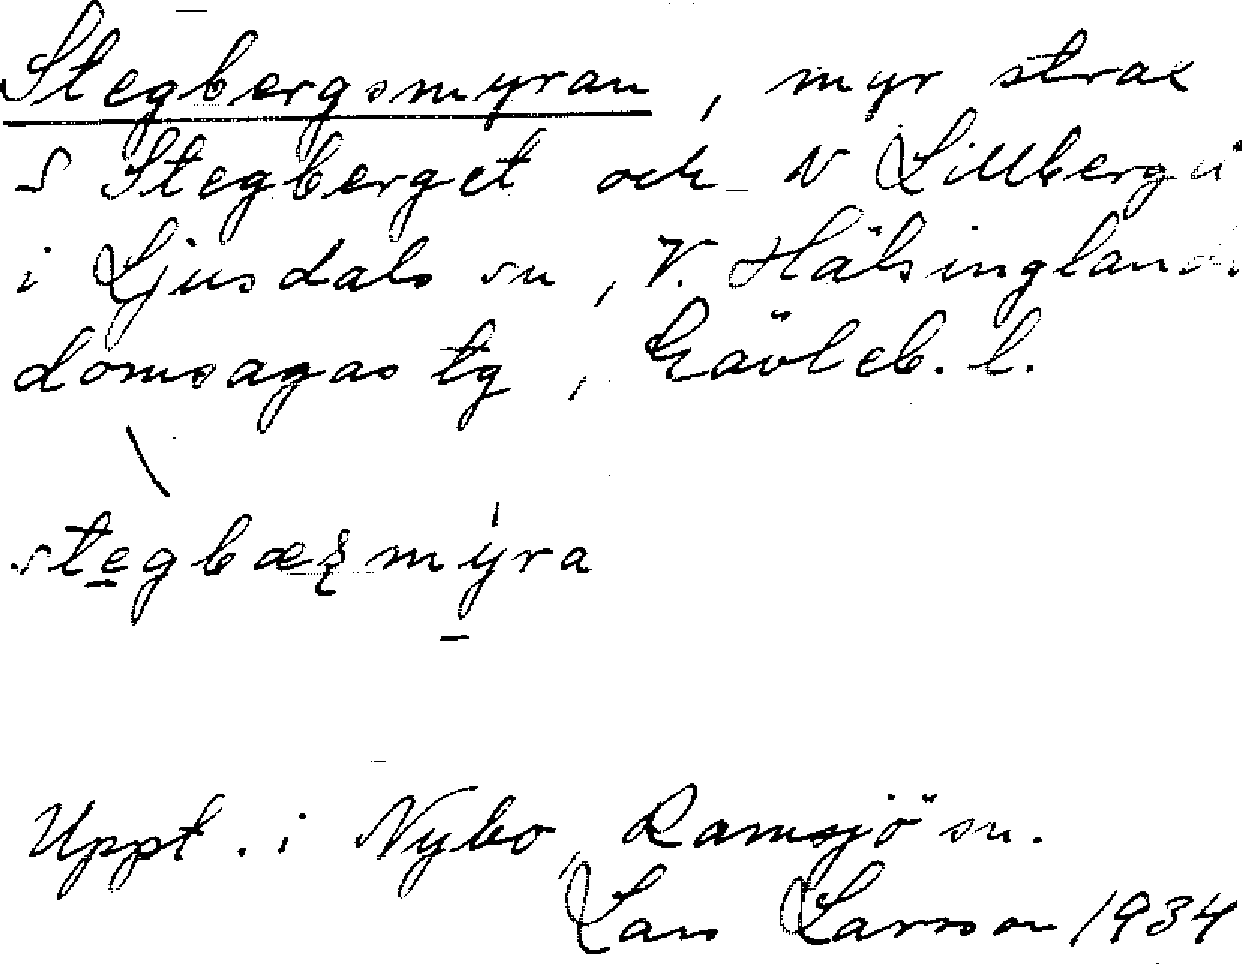 Stegbergsmyran, myr strax
S Stegberget och N Lillberget
i Ljusdals sn, V. Hälsinglands
domsagas tg, Gävleb. l.
Uppt. i Nybo, Ramsjö sn.
Lars Larsson 1934